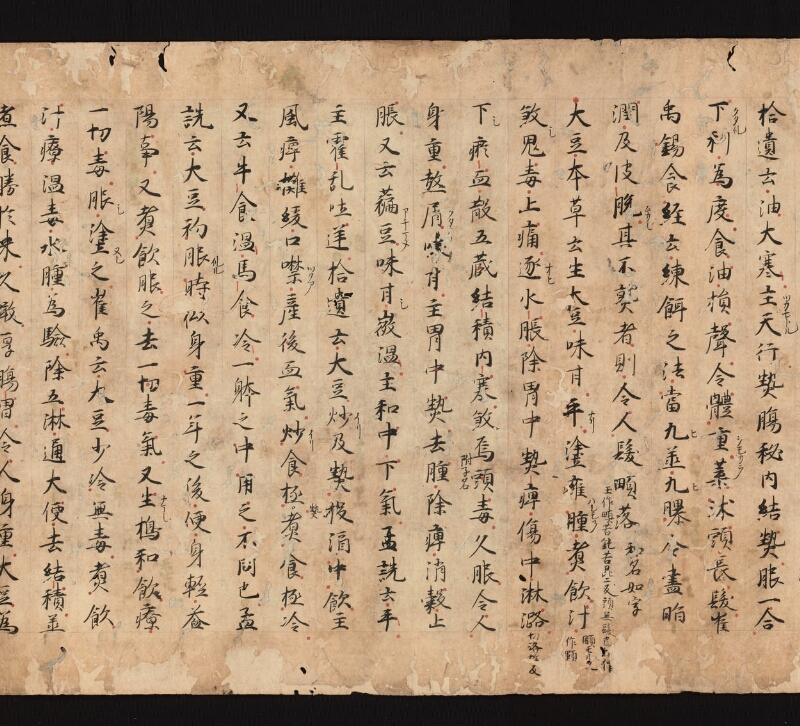 拾遺云油大寒主天行熱腸秘内結熱脹一合
下利為度食油損聲令體重藁沐頭長髮崔
禹錫食經云練餌之法當九蒸九曝令盡脂
潤及皮脫其不熟者則令人髮落 和名如字
大豆本草云生大豆味甘平塗癰腫煮飲汁
煞鬼毒止痛逐水脹除胃中熱痺傷中淋潞
下瘀血散五蔵結積内寒煞烏頭毒久服令人
附子名
身重熬屑味甘主胃中熱去腫除痺消穀止
脹又云藊豆味甘微温主和中下氣孟詵云平
主霍乱吐逆拾遺云大豆炒及熱投酒中飲主
風痺灘緩口噤産後血氣炒食極熱煮食極冷
又云牛食温馬食冷一躰之中用之不同也孟
詵云大豆初脹時似身重一年之後便身軽益
陽事又煮飲脹之去一切毒氣又生搗和飲療
一切毒脹塗之崔禹云大豆少冷無毒煮飲
汁療温毒水腫為驗除五淋通大便去結積並
煮食勝於米久敢厚腸胃令人身重大豆為